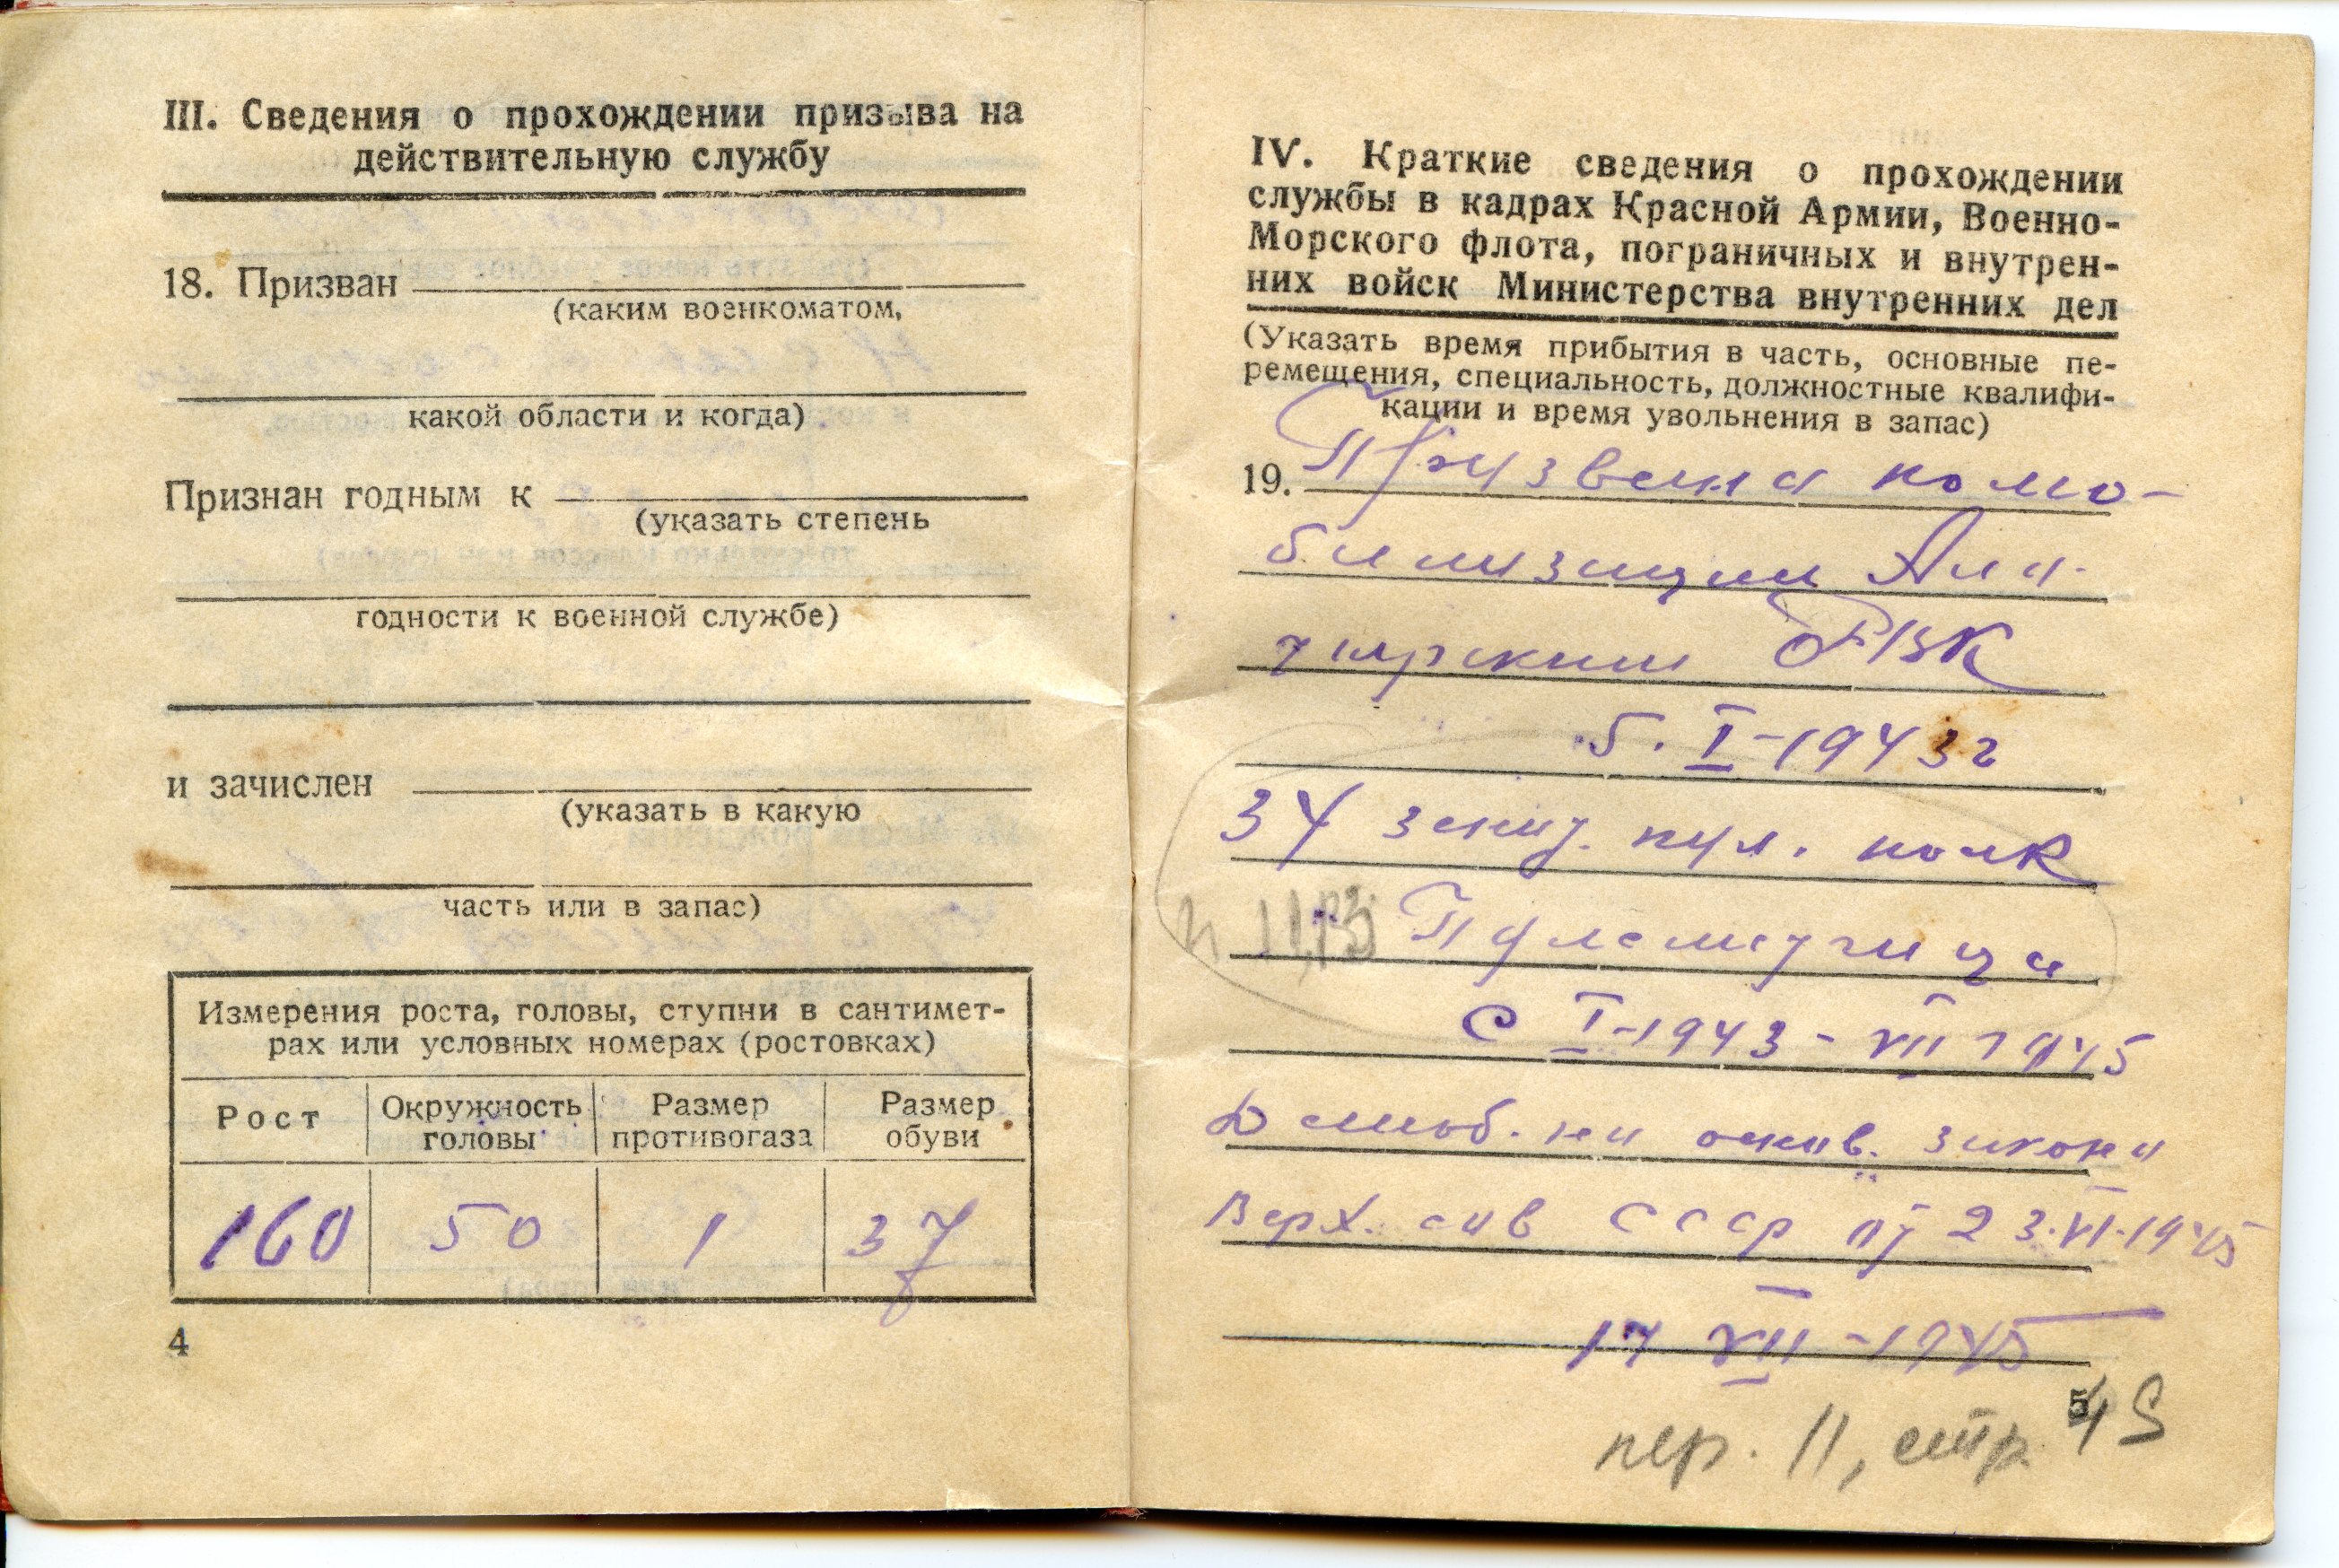 III. Сведения о прохождении призыва на
действительную службу
18. Призван
(каким военкоматом,
какой области и когда)
Признан годным к
(указать степень
годности к военной службе)
и зачислен
(указать в какую
часть или в запас)
Измерения роста, головы, ступни в сантимет-
рах или условных номерах (ростовках)
Рост
Окружность
головы
Размер
противогаза
Размер
обуви
160 50 1 37
4
IV. Краткие сведения о прохождении
службы в кадрах Красной Армии, Военно-
Морского флота, пограничных и внутрен-
них войск Министерства внутренних дел
(Указать время прибытия в часть, основные пе-
ремещения, специальность, должностные квалифи-
кации и время увольнения в запас)
19. Призвана по мо-
билизации Ала-
тырским РВК
5. I-1943 г
34 запД. пул. полк
Пулеметчица
с I-1943 - VII 1945
Демоб. на основ. закона
Верх. сов СССР от 23.VI.1945
17 VII-1945
5
пер. 11, стр 45